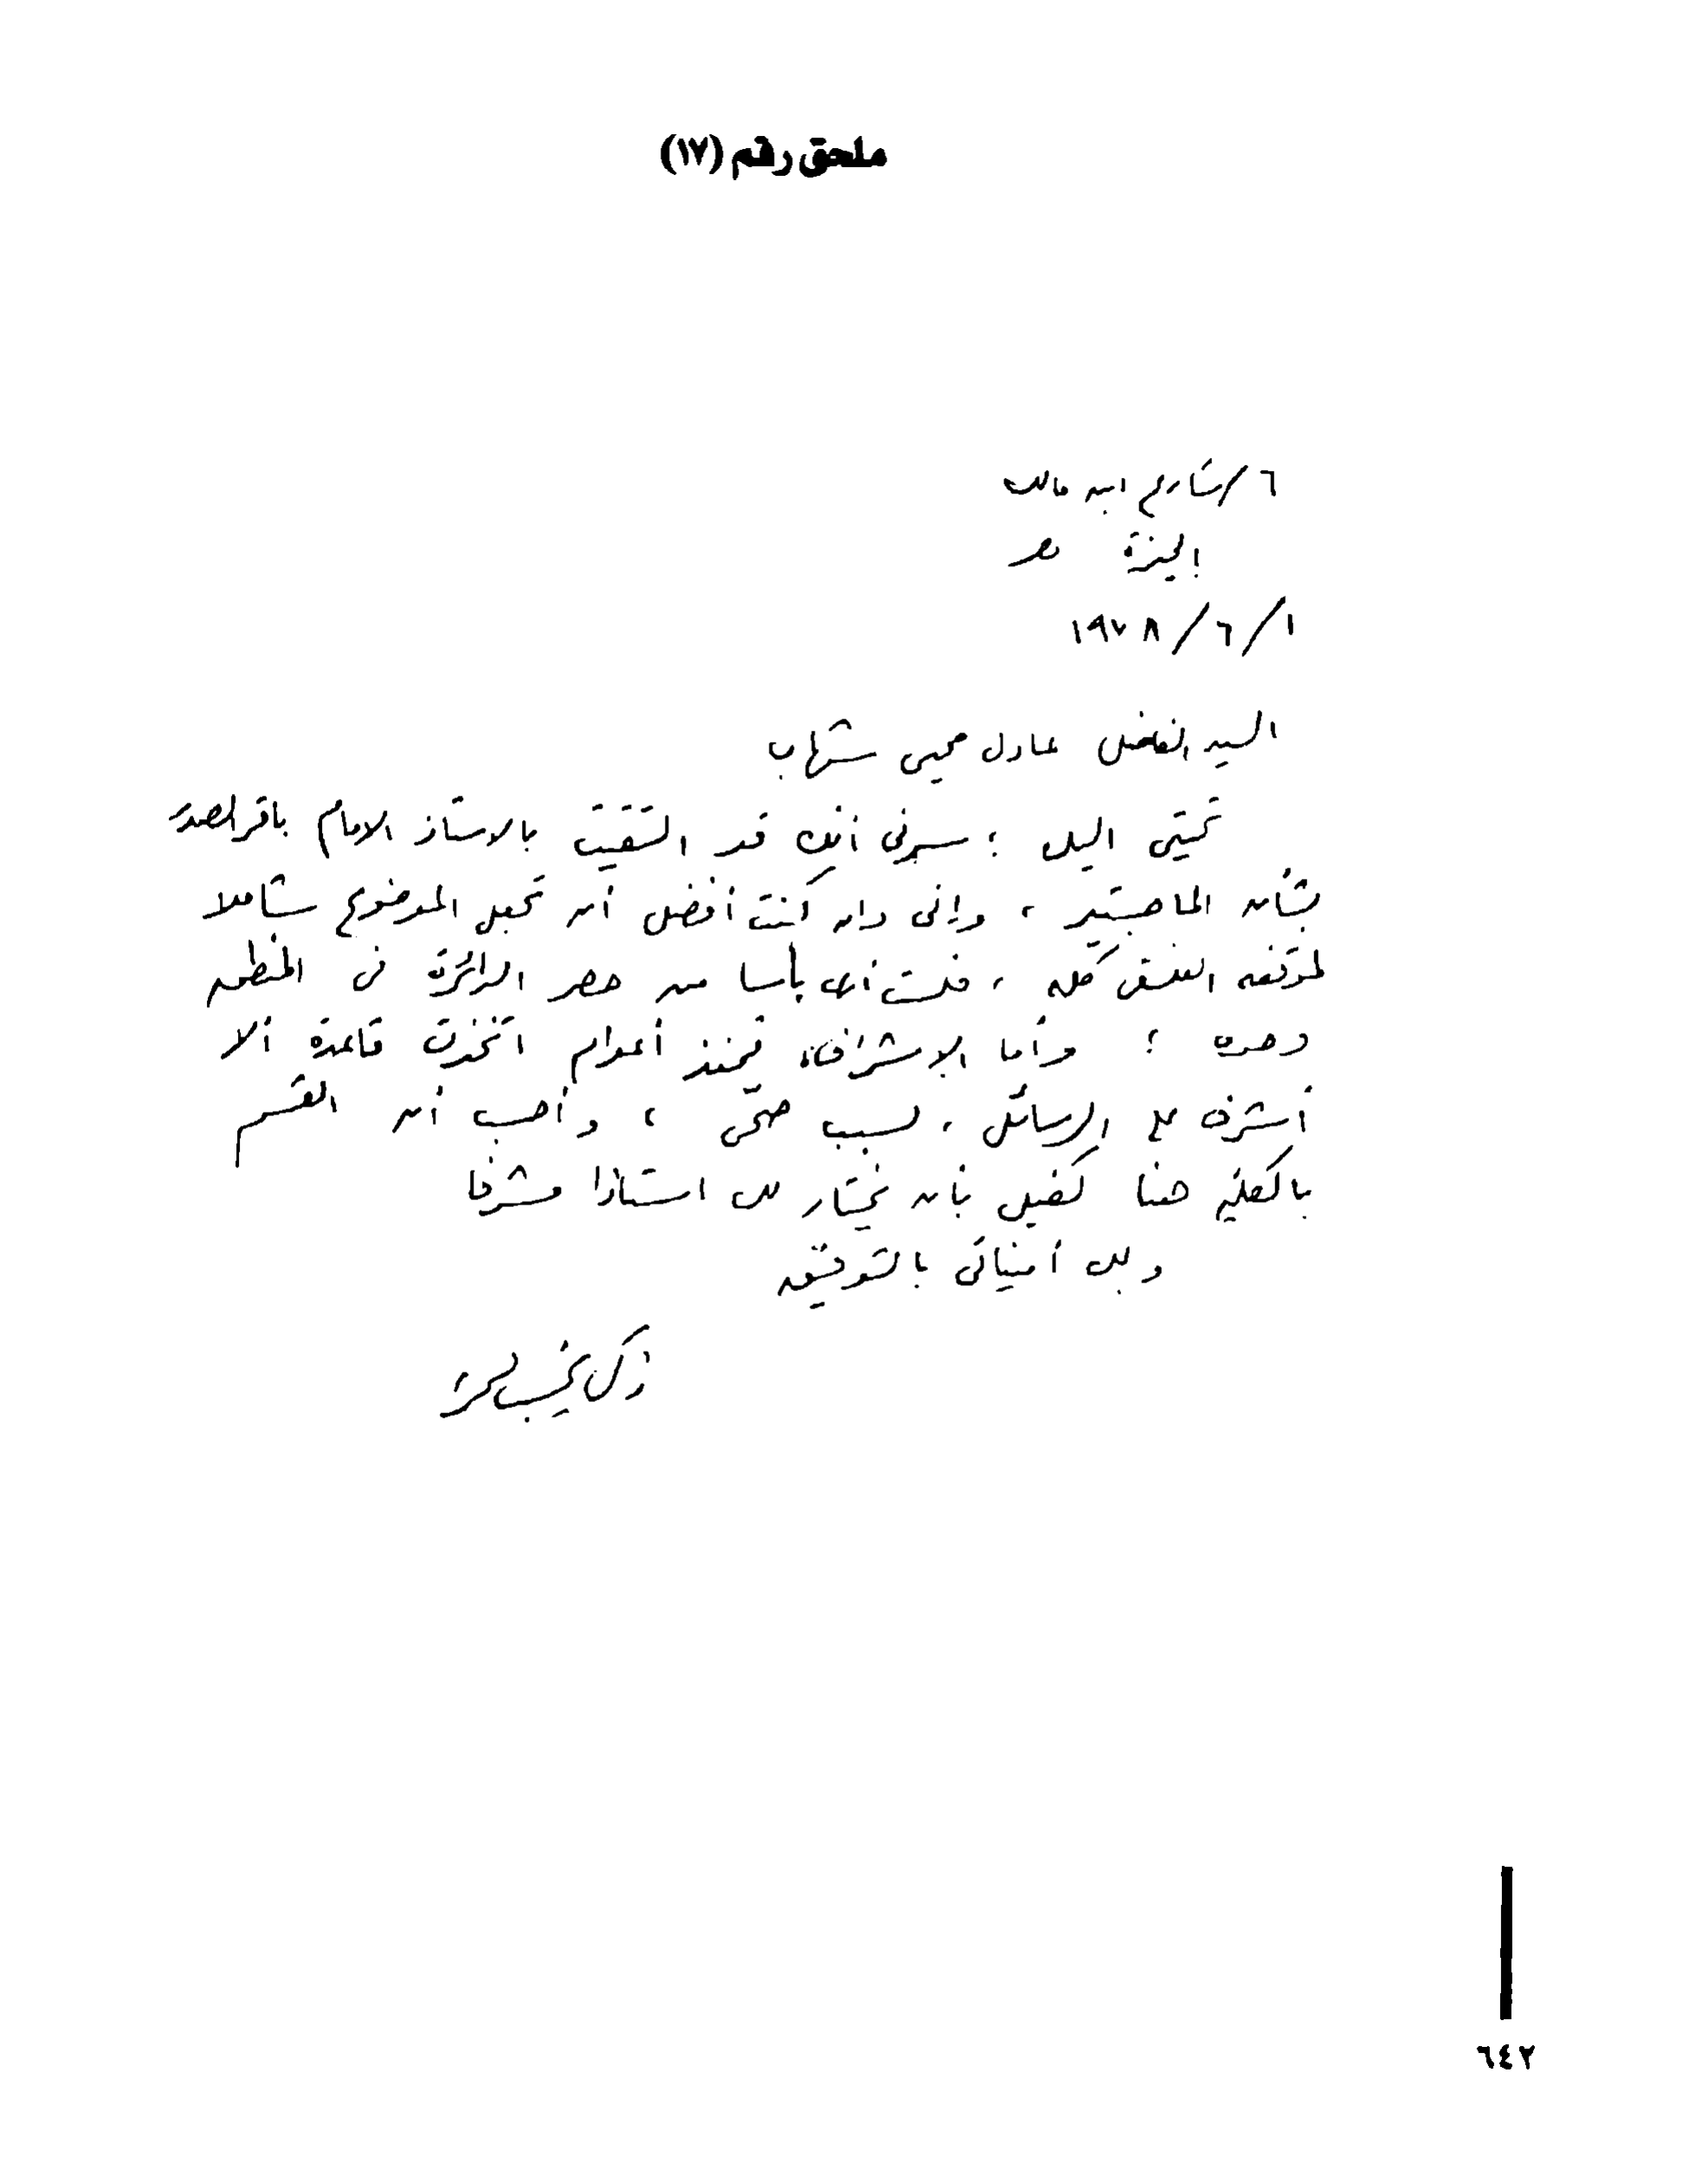 ملحق رقم (١٧)
٦ / شارع ابن مالك
الجيزة مصر
١ / ٦ / ١٩٧٨
السيد الفاضل عادل محيى شهاب
تحيتى اليك ؛ سرنى أنك قد التقيت بالاستاذ الامام باقر الصدر
بشأن الماجستير ، وإنى وان كنت أفضل أن تجعل الموضوع شاملا
لموقفه الفلسفى كله ، فلست أرى بأسا من حصر الدائرة فى المنطق
وحده ؛ وأما الإشراف فمنذ أعوام اتخذت قاعدة ألا
أشرف على الرسائل ، لسبب صحى ، وأحسب أن القسم
بالكلية هنا كفيل بأن يختار لك استاذا مشرفا
ولك أمنياتى بالتوفيق
زكى نجيب محمود
٦٤٢